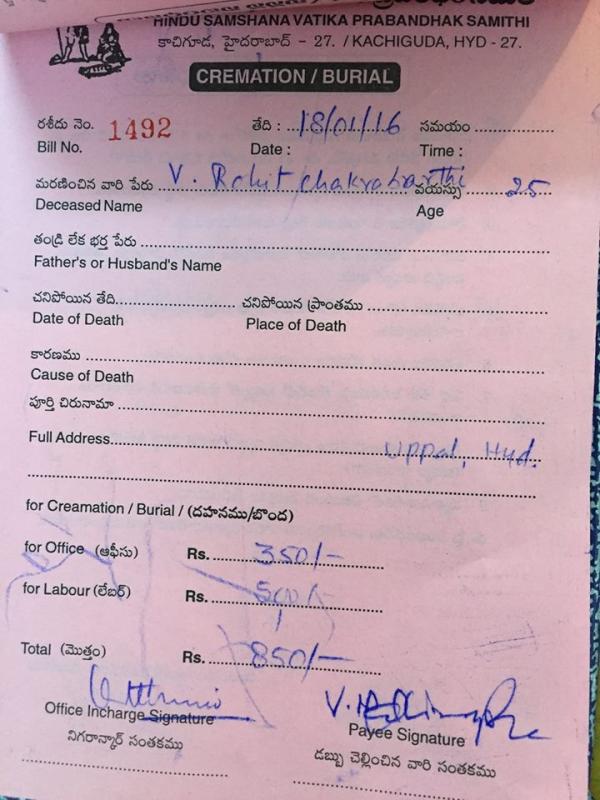 HINDU SAMSHANA VATIKA PRABANDHAK SAMITHI
కాచిగూడ, హైదరాబాద్ - 27. / KACHIGUDA, HYD - 27.
CREMATION / BURIAL
రశీదు నెం. 1492 తేది : 18/01/16 సమయం
Bill No. Date : Time :
మరణించిన వారి పేరు V. Rohit chakrabarthi వయస్సు 25
Deceased Name Age
తండ్రి లేక భర్త పేరు
Father's or Husband's Name
చనిపోయిన తేది చనిపోయిన ప్రాంతము
Date of Death Place of Death
కారణము
Cause of Death
పూర్తి చిరునామా
Full Address Uppal, Hyd.
for Creamation / Burial / (దహనము/బొంద)
for Office (ఆఫీసు) Rs. 350/-
for Labour (లేబర్) Rs. 500/-
Total (మొత్తం) Rs. 850/-
Office Incharge Signature
నిగరాన్కార్ సంతకము
Payee Signature
డబ్బు చెల్లించిన వారి సంతకము